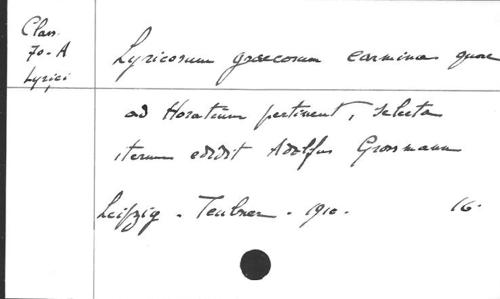 Class.
70-A
Lyrici
Lyricorum graecorum carmina quae
ad Horatium pertinent, selecta
iterum edidit Adolfus Grossmann
Leipzig - Teubner - 1910. 16.